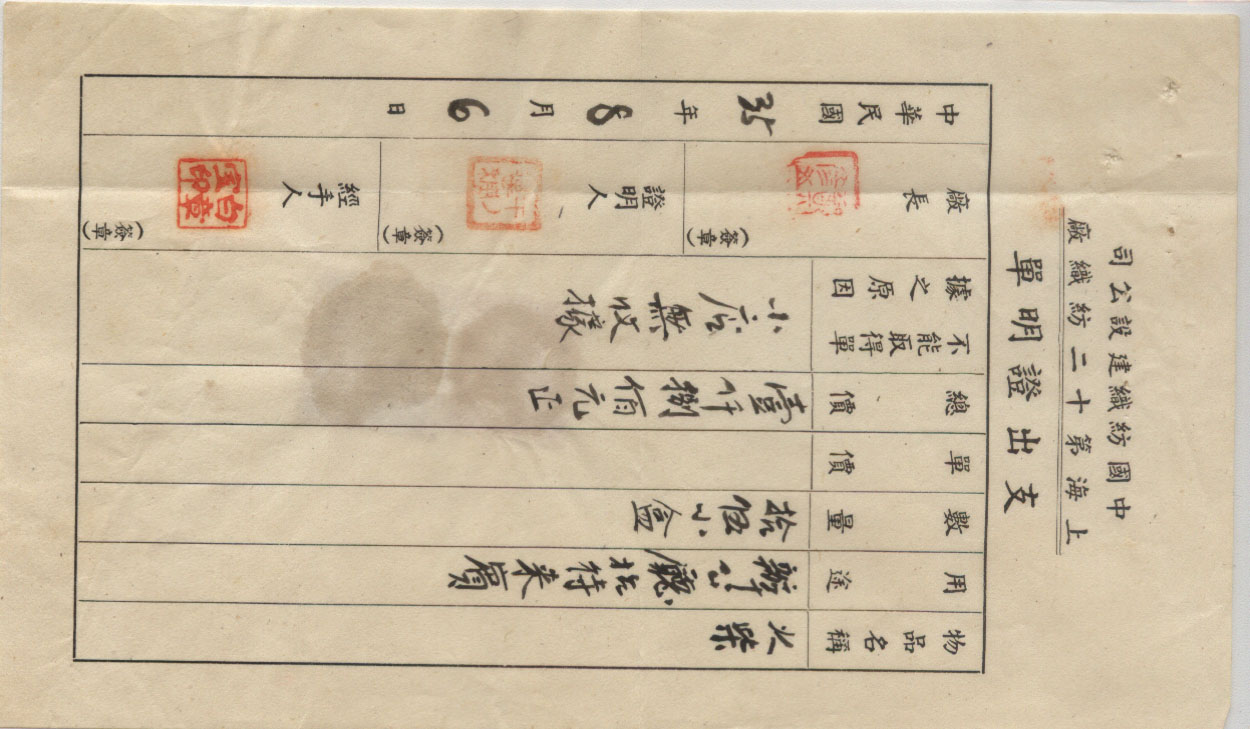 中國紡織建設公司
上海第十二紡織廠
支出證明單
物品名稱 火柴
用途 辦公廳招待來賓
數量 拾伍小盒
單價
總價 壹仟捌佰元正
不能取得單據之原因 小店無收據
廠長 (簽章)
證明人 (簽章)
經手人 (簽章)
中華民國35年8月6日